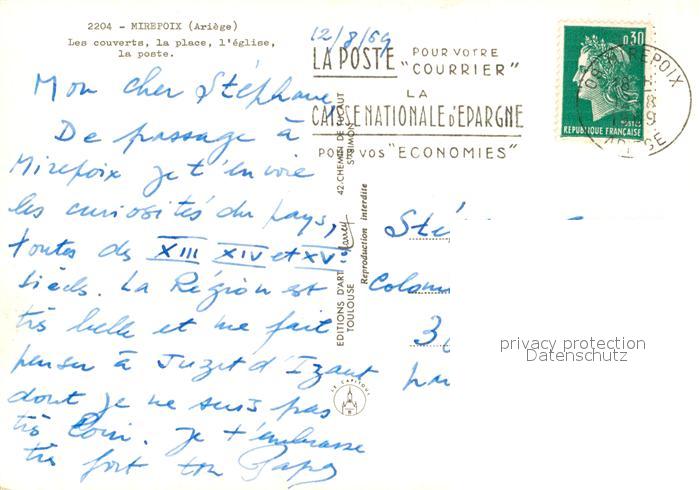 2204 - MIREPOIX (Ariège)
Les couverts, la place, l'église,
la poste.
12/8/69
LA POSTE POUR VOTRE "COURRIER"
LA
CAISSE NATIONALE d'EPARGNE
POUR VOS "ECONOMIES"
0,30
POSTES
REPUBLIQUE FRANÇAISE
MIREPOIX
Mon cher Stéphane,
De passage à
Mirepoix je t'envoie
les curiosités du pays,
toutes des XIII XIV et XV
siècles. La Région est
très belle et me fait
penser à Juzet d'Izaut
dont je ne suis pas
très loin. Je t'embrasse
très fort ton Papa
EDITIONS D'ART
TOULOUSE
42, CHEMIN DE
Reproduction interdite
LE CAPITOUL
Sté
Colom
3
privacy protection
Datenschutz